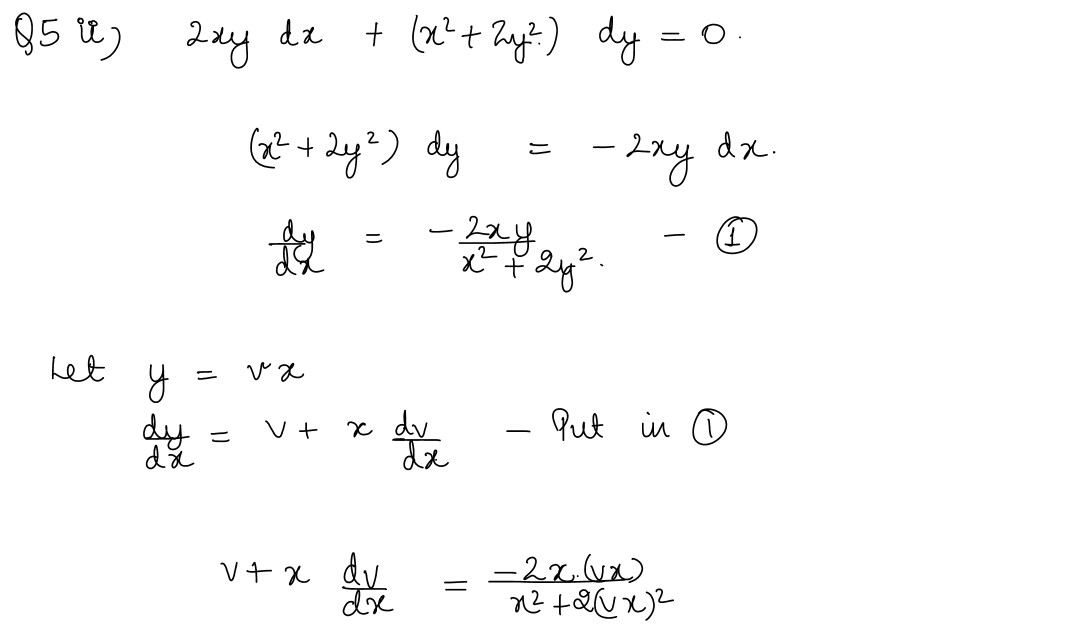 Q5 ii) 2xy dx + (x² + 2y²) dy = 0.
(x² + 2y²) dy = - 2xy dx.
dy/dx = - 2xy/(x² + 2y²). - ①
Let y = vx
dy/dx = v + x dv/dx - Put in ①
v + x dv/dx = -2x.(vx)/(x² + 2(vx)²)